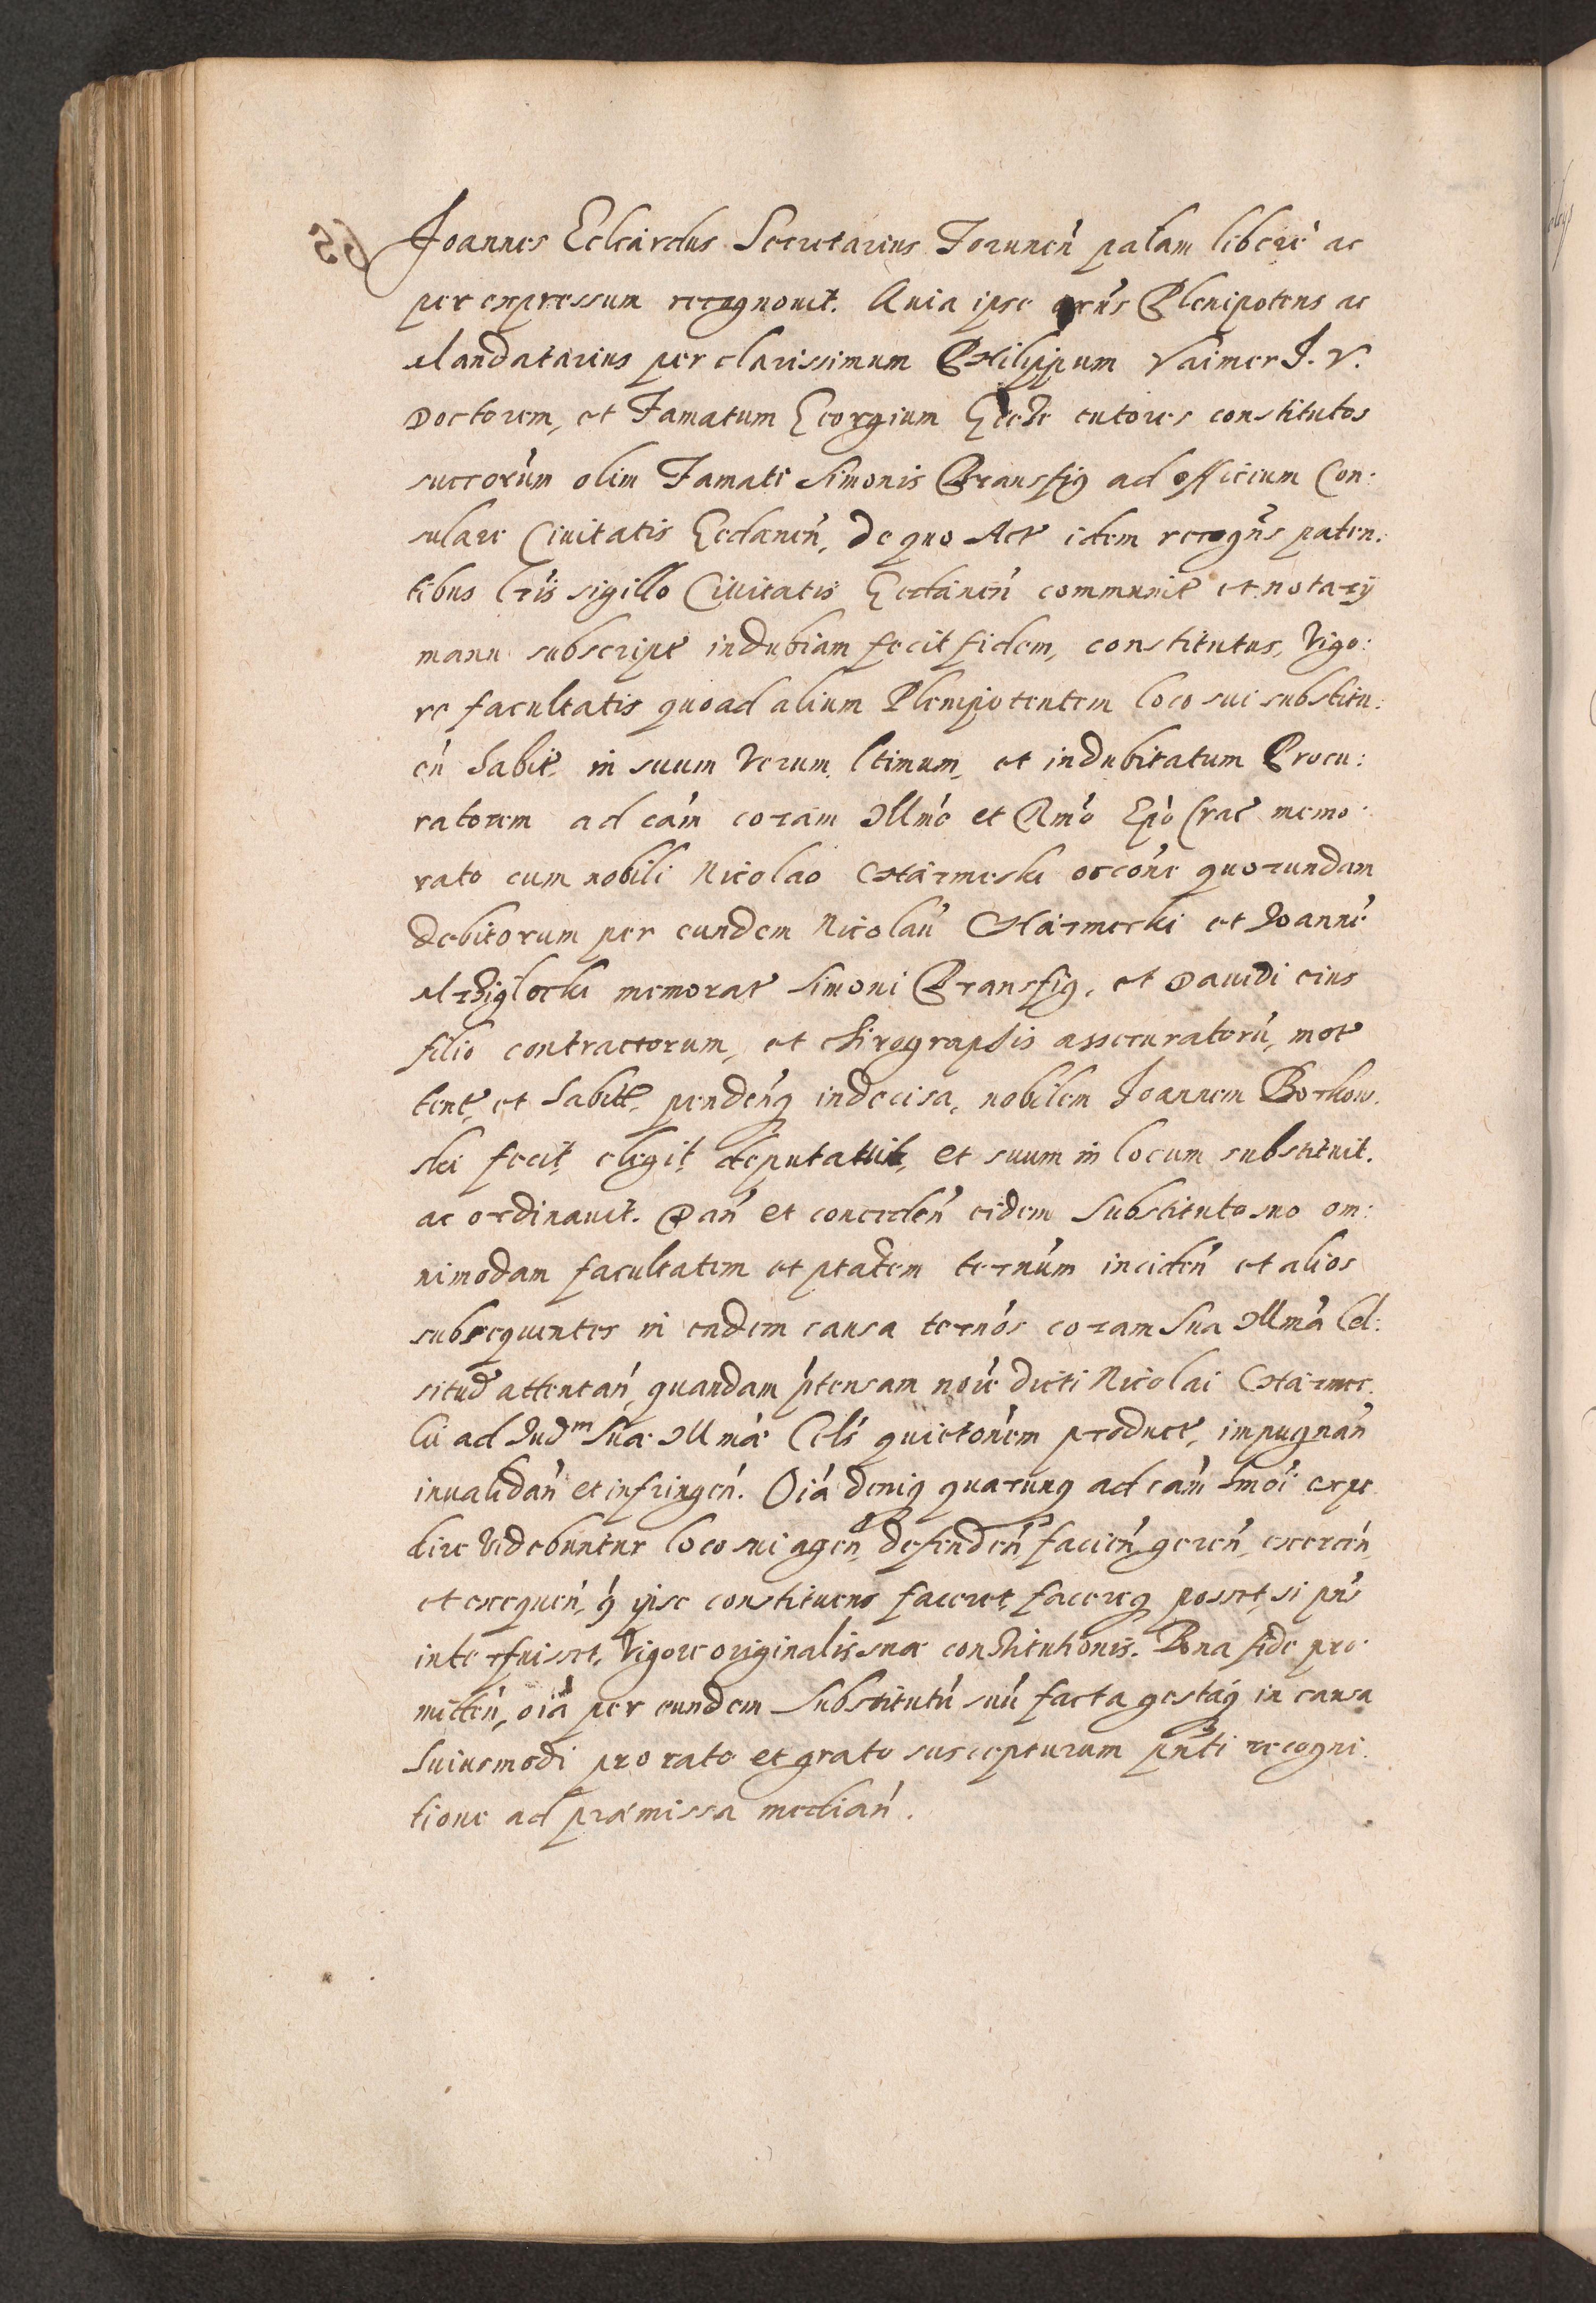 Joannes Eckardus Secretarius Torunen̄ palam libere ac
per expressum recognovit. Quia ipse Plenipotens ac
Mandatarius per clarissimum Philippum Vaimer J. V.
Doctorem, et Famatum Georgium tutores constitutos
succorum olim Famati Simonis Bransfig ad officium Con:
sulare Civitatis Gedanen̄, de quo Act idem recogn̄s paten:
tibus lr̄is sigillo Civitatis Gedanen̄ communit et notarij
manu subscript indubiam fecit fidem, constitutus, vigo:
re facultatis quoad alium Plenipotentem loco sui substitu:
en̄ habit, in suum verum, ltimum, et indubitatum Procu:
ratorem ad cām coram Illm̄o et Rm̄o Ep̄o Crac memo:
rato cum nobili Nicolao Charmeski occōne quorundam
debitorum per eundem Nicolaū Charmecki et Joannē
memorat Simoni Bransfig, et Davidi eius
filio contractorum, et chirographis assecuratorū, mot
tent, et habitt, penden̄q indecisa, nobilem Joannem Borkow:
ski fecit, elegit, deputavit, et suum in locum substituit,
ac ordinavit. Dan̄ et conceden̄ eidem Substituto suo om:
nimodam facultatem et ptatem ternūm inciden̄ et alios
subsequentes in eadem causa ternōs coram Sua Illmā Cel:
situd attentan̄, quandam p̄tensam nōie dicti Nicolai Charmec:
ki ad Jud^m Suæ Illmæ Cels̄ quietōnem product, impugnan̄
invalidan̄ et infringen̄. Oīa deniq quacunq ad cām hmōi expe:
dire videbuntur loco sui agen̄, defenden̄, facien̄, geren̄, exercen̄,
et exequen̄, q̄ ipse constituens faceret, facereq posset, si pn̄s
interfuisset, vigore originalis suæ constitutionis. Bona fide pro:
mitten̄, oīa per eundem Substitutū suū facta gestaq in causa
huiusmodi pro rato et grato suscepturum pn̄ti recogni:
tione ad præmissa median̄.